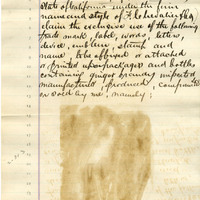 State of California under the firm
name and style of F. Chevalier & Co,
claim the exclusive use of the following
trade marks, label, words, letters,
device, emblem, stamp and
name, to be affixed or attached
or printed upon packages and bottles
containing ginger brandy imported
manufactured, produced, compounded
or sold by me, namely: